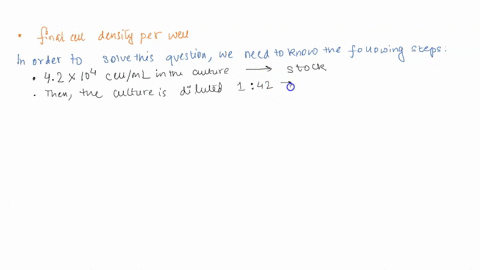 • final cell density per well
In order to solve this question, we need to know the following steps:
• 4.2 × 10⁴ cell/mL in the culture → stock
• Then, the culture is diluted 1:42 →